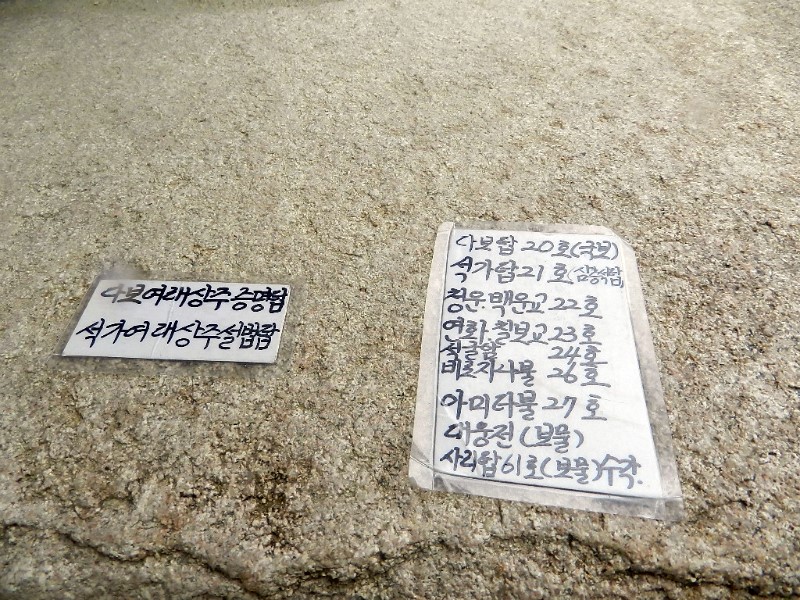 다보여래상주증명탑
석가여래상주설법탑
다보탑 20호(국보)
석가탑21호(삼층석탑)
청운.백운교 22호
연화.칠보교 23호
석굴암 24호
비로자나불 26호
아미타불 27호
대웅전 (보물)
사리탑61호(보물)수각.